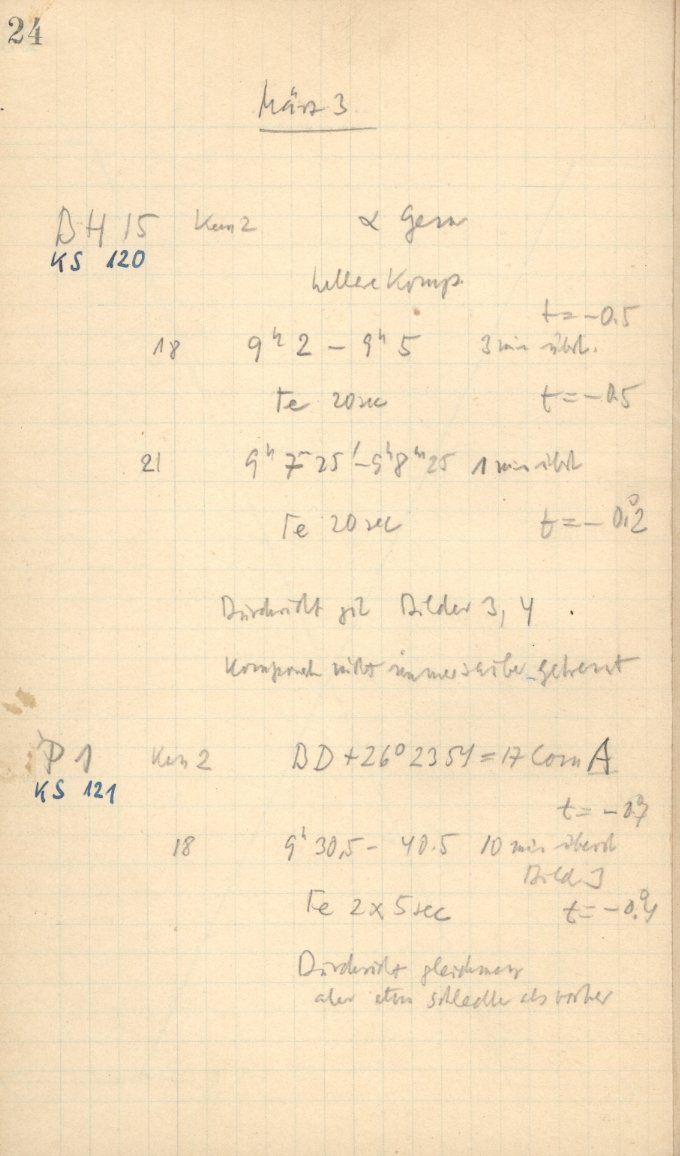 24
März 3
BH 15 Kem 2 α Gem
KS 120
hellere Komp.
t = -0.5
18 9h 2 - 9h 5 3 min übst.
Fe 20 sec t = -0.5
21 9h 7m 25s - 9h 8m 25 1 min übst
Fe 20 sec t = - 0.°2
Durchsicht gut Bilder 3, 4.
Komponenten nicht immer sauber getrennt
P 1 Kem 2 BD +26° 2354 = 17 Com A
KS 121
t = -0.°7
18 9h 30,5 - 40.5 10 min überst
Bild 3
Fe 2 x 5 sec t = -0.°4
Durchsicht
aber etwas schlechter als vorher